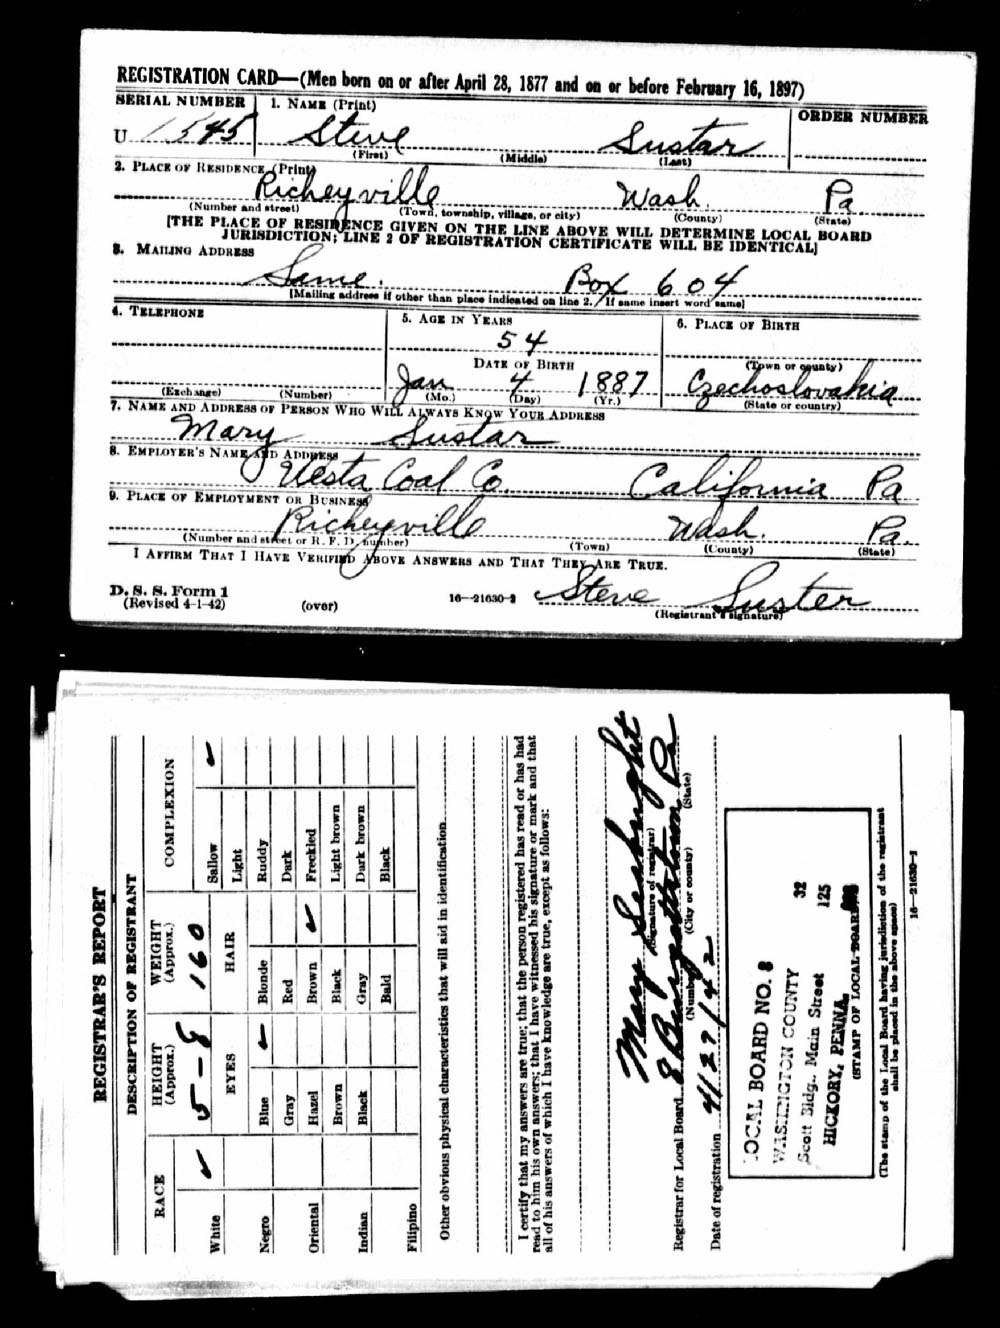 REGISTRATION CARD—(Men born on or after April 28, 1877 and on or before February 16, 1897)
SERIAL NUMBER 1. NAME (Print) ORDER NUMBER
U 1545 Steve Sustar
(First) (Middle) (Last)
2. PLACE OF RESIDENCE (Print)
Richeyville Wash. Pa
(Number and street) (Town, township, village, or city) (County) (State)
[THE PLACE OF RESIDENCE GIVEN ON THE LINE ABOVE WILL DETERMINE LOCAL BOARD
JURISDICTION; LINE 2 OF REGISTRATION CERTIFICATE WILL BE IDENTICAL]
3. MAILING ADDRESS
Same. Box 604
[Mailing address if other than place indicated on line 2. If same insert word same]
4. TELEPHONE 5. AGE IN YEARS 6. PLACE OF BIRTH
54
DATE OF BIRTH (Town or county)
Jan 4 1887 Czechoslovakia
(Exchange) (Number) (Mo.) (Day) (Yr.) (State or country)
7. NAME AND ADDRESS OF PERSON WHO WILL ALWAYS KNOW YOUR ADDRESS
Mary Sustar
8. EMPLOYER'S NAME AND ADDRESS
Vesta Coal Co. California Pa
9. PLACE OF EMPLOYMENT OR BUSINESS
Richeyville Wash. Pa.
(Number and street or R. F. D. number) (Town) (County) (State)
I AFFIRM THAT I HAVE VERIFIED ABOVE ANSWERS AND THAT THEY ARE TRUE.
D. S. S. Form 1
(Revised 4-1-42) (over) 16—21630-2 Steve Suster
(Registrant's signature)
REGISTRAR'S REPORT
DESCRIPTION OF REGISTRANT
RACE HEIGHT (Approx.) WEIGHT (Approx.) COMPLEXION
5-8 160
EYES HAIR
White ✓ Sallow ✓
Light
Negro Blue ✓ Blonde Ruddy
Gray Red Dark
Oriental Hazel Brown ✓ Freckled
Brown Black Light brown
Indian Black Gray Dark brown
Bald Black
Filipino
Other obvious physical characteristics that will aid in identification
I certify that my answers are true; that the person registered has read or has had
read to him his own answers; that I have witnessed his signature or mark and that
all of his answers of which I have knowledge are true, except as follows:
Mary
(Signature of registrar)
Registrar for Local Board 8 Pa
(Number) (City or county) (State)
Date of registration 4/27/42
LOCAL BOARD NO. 8 32
WASHINGTON COUNTY 125
Scott Bldg., Main Street
HICKORY, PENNA.
(STAMP OF LOCAL BOARD)
(The stamp of the Local Board having jurisdiction of the registrant
shall be placed in the above space)
16—21630-1